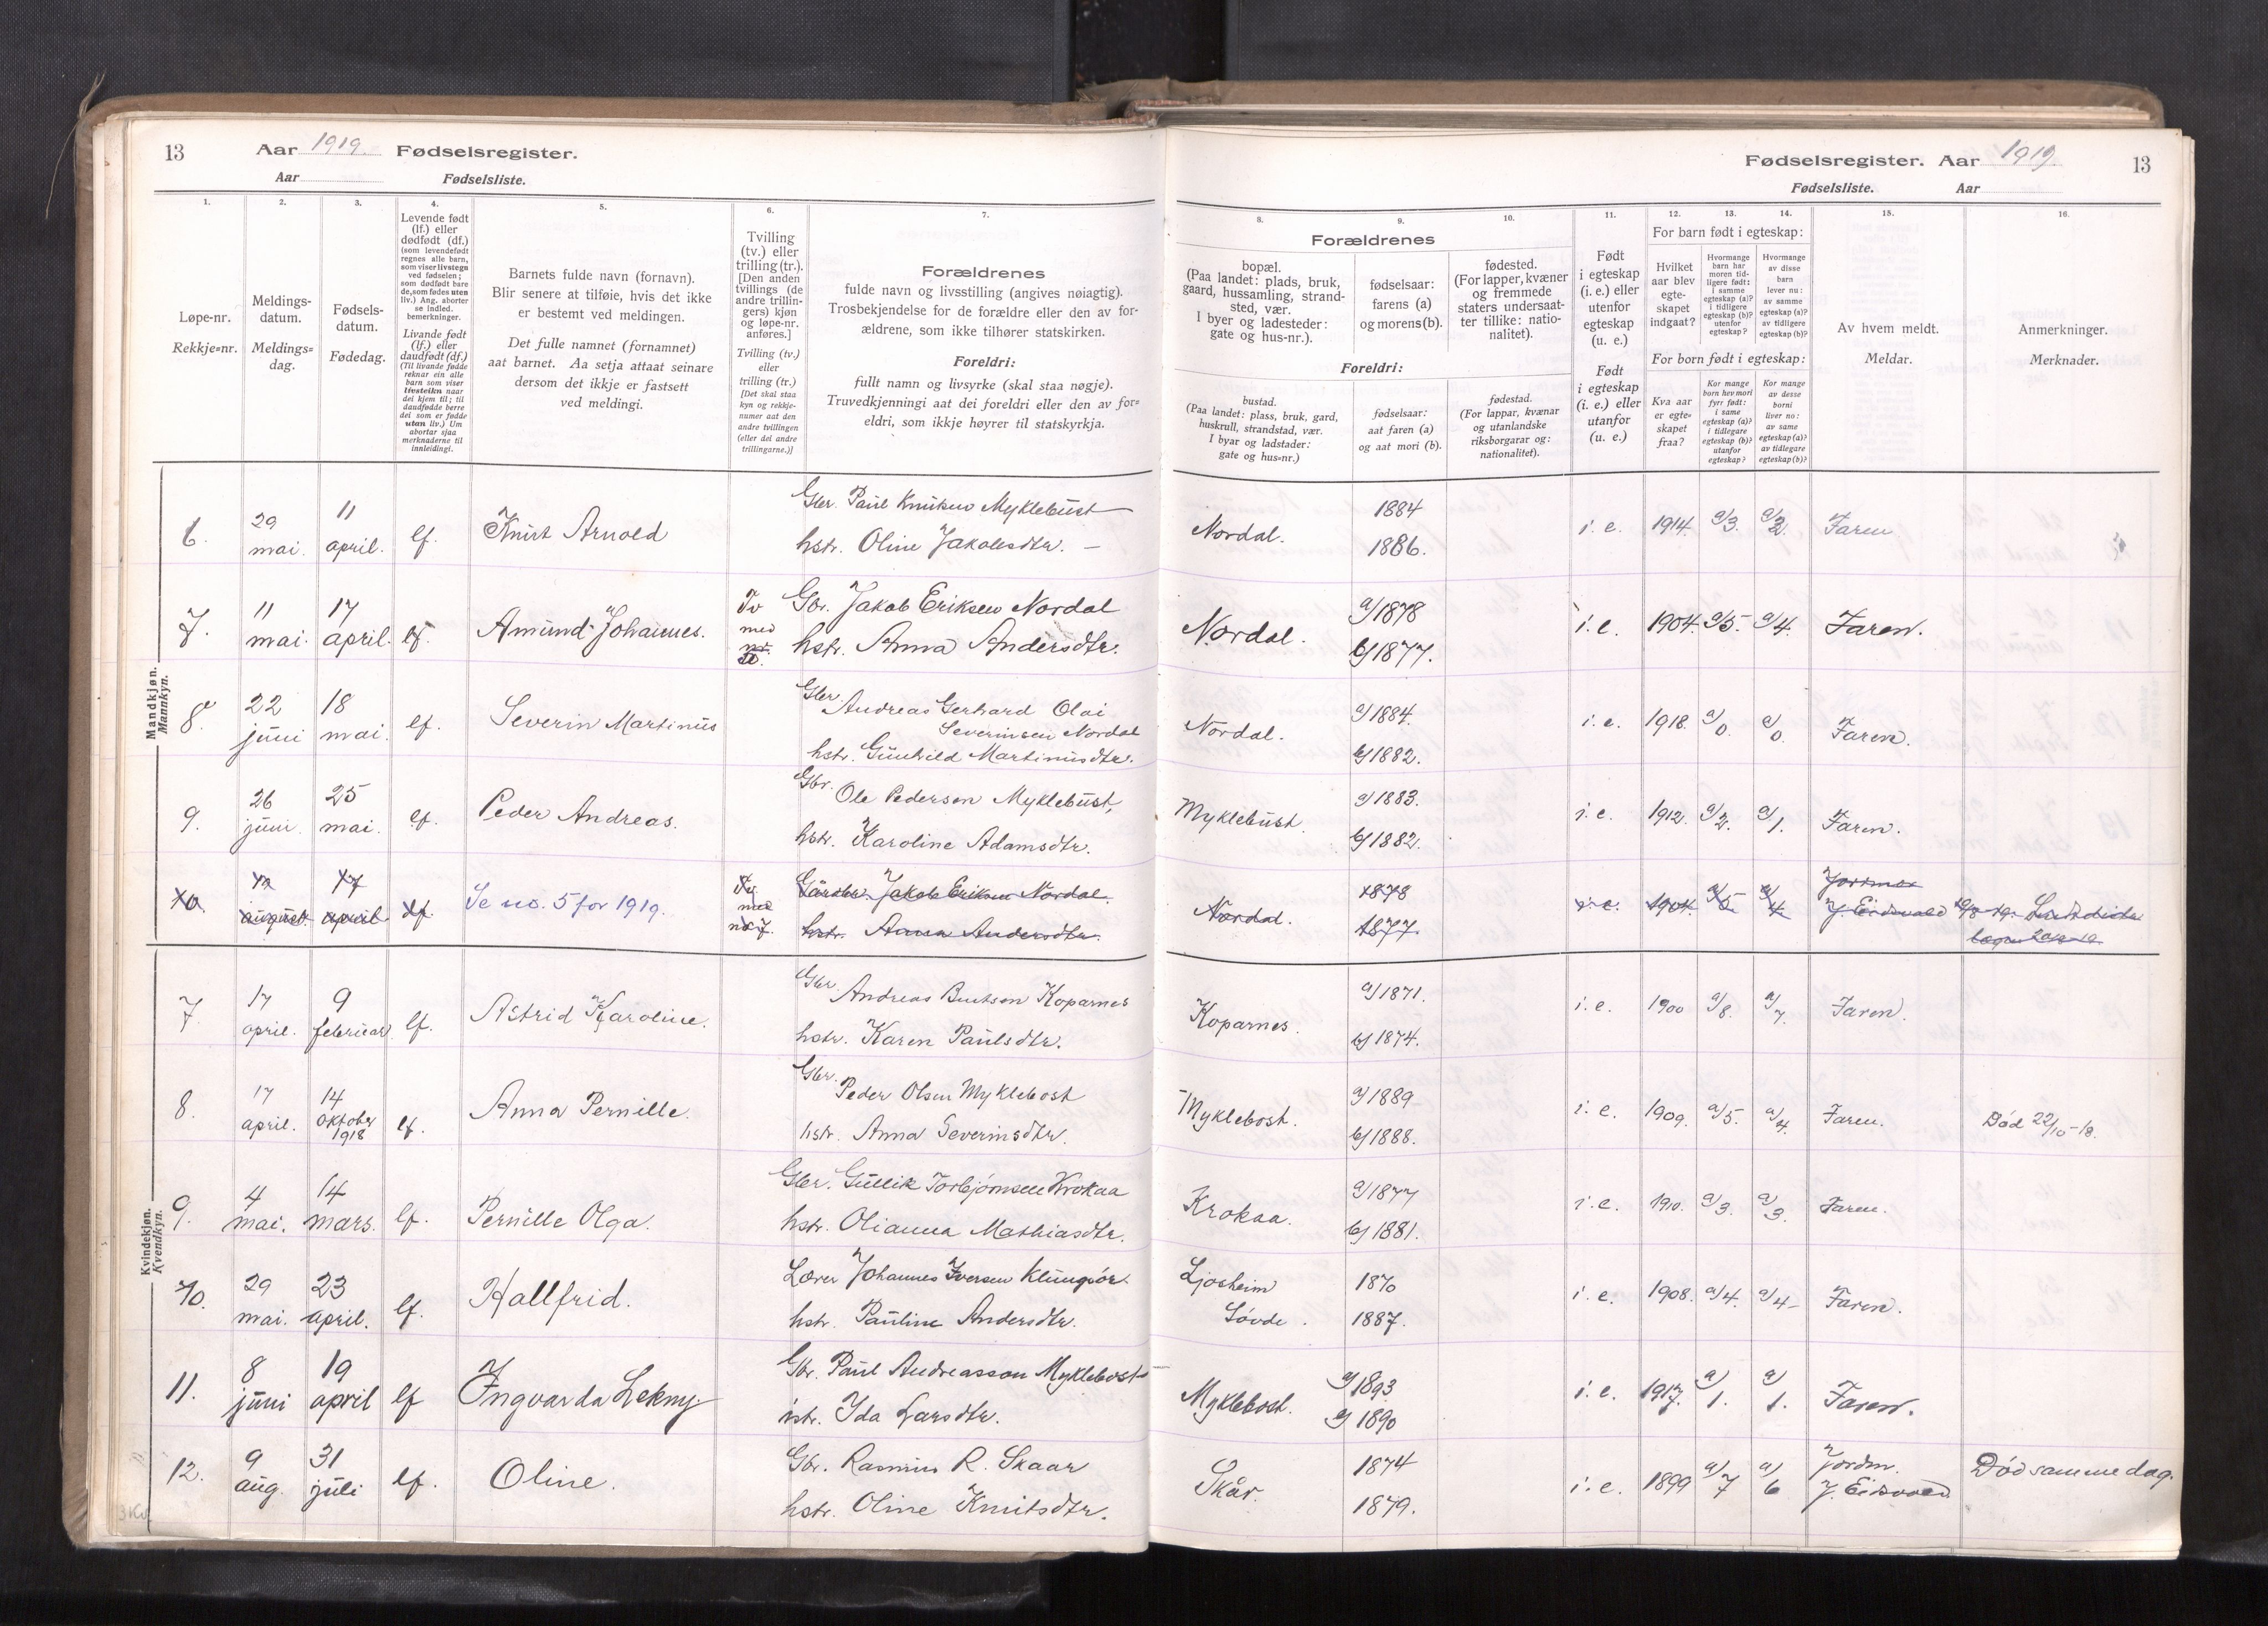 13 Aar 1919. Fødselsregister.
Aar Fødselsliste.
1. 2. 3. 4. 5. 6. 7.
Løpe-nr.
Rekkje=nr.
Meldings-
datum.
Meldings=
dag.
Fødsels-
datum.
Fødedag.
Levende født
(lf.) eller
dødfødt (df.)
(som levendefødt
regnes alle barn,
som viser livstegn
ved fødselen;
som dødfødt bare
de, som fødes uten
liv.) Ang. aborter
se indled.
bemerkninger.
Livande født
(lf.) eller
daudfødt (df.)
(Til livande fødde
reknar ein alle
barn som viser
livsteikn naar
dei kjem til; til
daudfødde berre
dei som er fødde
utan liv.) Um
abortar sjaa
merknaderne til
innleidingi.
Barnets fulde navn (fornavn).
Blir senere at tilføie, hvis det ikke
er bestemt ved meldingen.
Det fulle namnet (fornamnet)
aat barnet. Aa setja attaat seinare
dersom det ikkje er fastsett
ved meldingi.
Tvilling
(tv.) eller
trilling (tr.).
[Den anden
tvillings (de
andre trillin-
gers) kjøn
og løpe-nr.
anføres.]
Tvilling (tv.)
eller
trilling (tr.)
[Det skal staa
kyn og rekkje-
numer aat den
andre tvillingen
(eller dei andre
trillingarne.)]
Forældrenes
fulde navn og livsstilling (angives nøiagtig).
Trosbekjendelse for de forældre eller den av for-
ældrene, som ikke tilhører statskirken.
Foreldri:
fullt namn og livsyrke (skal staa nøgje).
Truvedkjenningi aat dei foreldri eller den av for=
eldri, som ikkje høyrer til statskyrkja.
Mandkjøn.
Mannkyn.
6. 29 mai. 11 april. lf. Knut Arnold
Gbr. Paul Knutsen Myklebust
hstr. Oline Jakobsdtr. —
7. 11 mai. 17 april. lf. Amund Johannes. Tv med nr.
Gbr. Jakob Eriksen Nordal
hstr. Anna Andersdtr.
8. 22 juni 18 mai. lf. Severin Martinus
Gbr. Andreas Gerhard Olai
Severinsen Nordal
hstr. Gunhild Martinusdtr.
9. 26 juni. 25 mai. lf. Peder Andreas.
Gbr. Ole Pedersen Myklebust,
hstr. Karoline Adamsdtr.
10. 12 august 17 april lf. Se no. 5 for 1919. Tv. med nr 7.
Gårdbr. Jakob Eriksen Nordal.
hstr. Anna Andersdtr.
Kvindekjøn.
Kvendkyn.
7. 17 april. 9 februar lf. Astrid Karoline.
Gbr. Andreas Bentsen Koparnes
hstr. Karen Paulsdtr.
8. 17 april. 14 oktober 1918 lf. Anna Pernille.
Gbr. Peder Olsen Myklebost
hstr. Anna Severinsdtr.
9. 4 mai. 14 mars. lf. Pernille Olga.
Gbr. Gullik Torbjørnsen Krokaa
hstr. Olianna Mathiasdtr.
10. 29 mai. 23 april. lf. Hallfrid.
Lærer Johannes Iversen Klungsör.
hstr. Pauline Andersdtr.
11. 8 juni 19 april lf Ingvarda Lekny.
Gbr. Paul Andreasson Myklebost
hstr. Ida Larsdtr.
12. 9 aug. 31 juli lf. Oline.
Gbr. Rasmus R. Skaar
hstr. Oline Knutsdtr.
Fødselsregister. Aar 1919. 13
Fødselsliste. Aar
8. 9. 10. 11. 12. 13. 14. 15. 16.
Forældrenes
bopæl.
(Paa landet: plads, bruk,
gaard, hussamling, strand-
sted, vær.
I byer og ladesteder:
gate og hus-nr.).
fødselsaar:
farens (a)
og morens (b).
fødested.
(For lapper, kvæner
og fremmede
staters undersaat-
ter tillike: natio-
nalitet).
Foreldri:
bustad.
(Paa landet: plass, bruk, gard,
huskrull, strandstad, vær.
I byar og ladstader:
gate og hus=nr.)
fødselsaar:
aat faren (a)
og aat mori (b).
fødestad.
(For lappar, kvænar
og utanlandske
riksborgarar og:
nationalitet).
Født
i egteskap
(i. e.) eller
utenfor
egteskap
(u. e.)
Født
i egteskap
(i. e.) eller
utanfor
(u. e.)
For barn født i egteskap:
Hvilket
aar blev
egte-
skapet
indgaat?
Hvormange
barn har
moren tid-
ligere født:
i samme
egteskap (a)?
i tidligere
egteskap (b)?
utenfor
egteskap?
Hvormange
av disse
barn
lever nu:
av samme
egteskap (a)?
av tidligere
egteskap (b)?
For born født i egteskap:
Kva aar
er egte=
skapet
fraa?
Kor mange
born hev mori
fyrr født:
i same
egteskap (a)?
i tidlegare
egteskap (b)?
utanfor
egteskap?
Kor mange
av desse
borni
liver no:
av same
egteskap (a)?
av tidlegare
egteskap (b)?
Av hvem meldt.
Meldar.
Anmerkninger.
Merknader.
Nordal. 1884 1886. i. e. 1914. a/3. a/2. Faren
Nordal. a/1878 b/1877. i. e. 1904. a/5. a/4. Faren.
Nordal. a/1884. b/1882. i. e. 1918. a/0. a/0. Faren.
Myklebust. a/1883. b/1882. i. e. 1912. a/2. a/1. Faren.
Nordal. 1878 1877. i. e. 1904. a/5. a/4. Jordmor J. Eidsvold
Koparnes. a/1871. b/1874. i. e. 1900 a/8. a/7. Faren.
Myklebost. a/1889 b/1888. i. e. 1909. a/5. a/4. Faren. Död 22/10-18.
Krokaa. a/1877 b/1881. i. e. 1910. a/3. a/3. Faren.
Ljosheim Sövde. 1870 1887. i. e. 1908. a/4. a/4 Faren.
Myklebost. a/1893 b/1890 i. e. 1917. a/1. a/1. Faren.
Skår. 1874 1879. i. e. 1899 a/7 a/6 Jordm. J. Eidsvold Död samme dag.